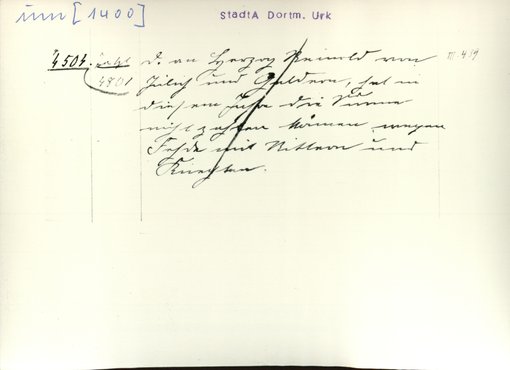 um [1400]
StadtA Dortm. Urk
4504.
4801
D. an Herzog Reinold von
Jülich und Geldern, hat in
diesem Jahre die Summe
nicht zahlen können wegen
Fehde mit Rittern und
Knechten.